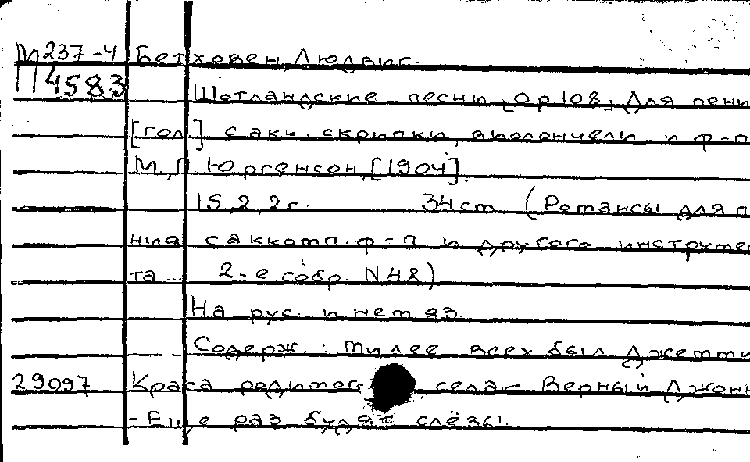 М 237-4 Бетховен, Людвиг.
П 4583
Шотландские песни, Op 108, Для пени
[гол] с акк. скрипки, виолончели и ф-п
М., П. Юргенсон, [1904].
15, 2, 2 с. 34 cm (Романсы для п
ния с акком. ф-п и другого инструмен
та ... 2-е собр. N 48)
На рус. и нем яз.
Содерж: Милее всех был Джемми
29097 Краса родимого села - Верный Джонни
- Еще раз будят слёзы.